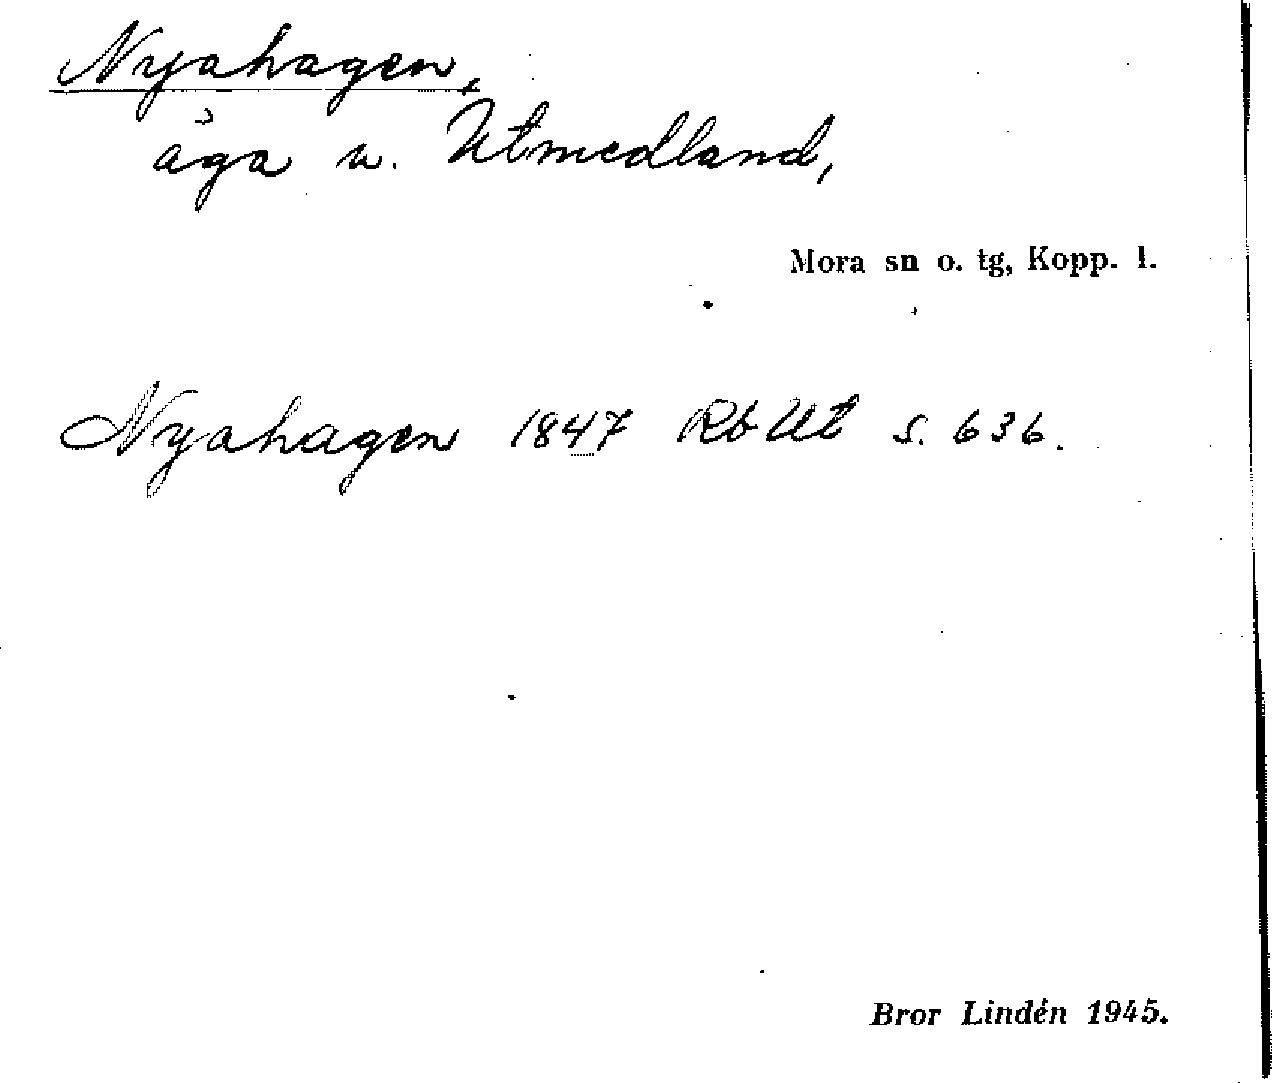 Nyahagen,
äga u. Utmedland,
Mora sn o. tg, Kopp. l.
Nyahagen 1847 Rb Ut s. 636.
Bror Lindén 1945.